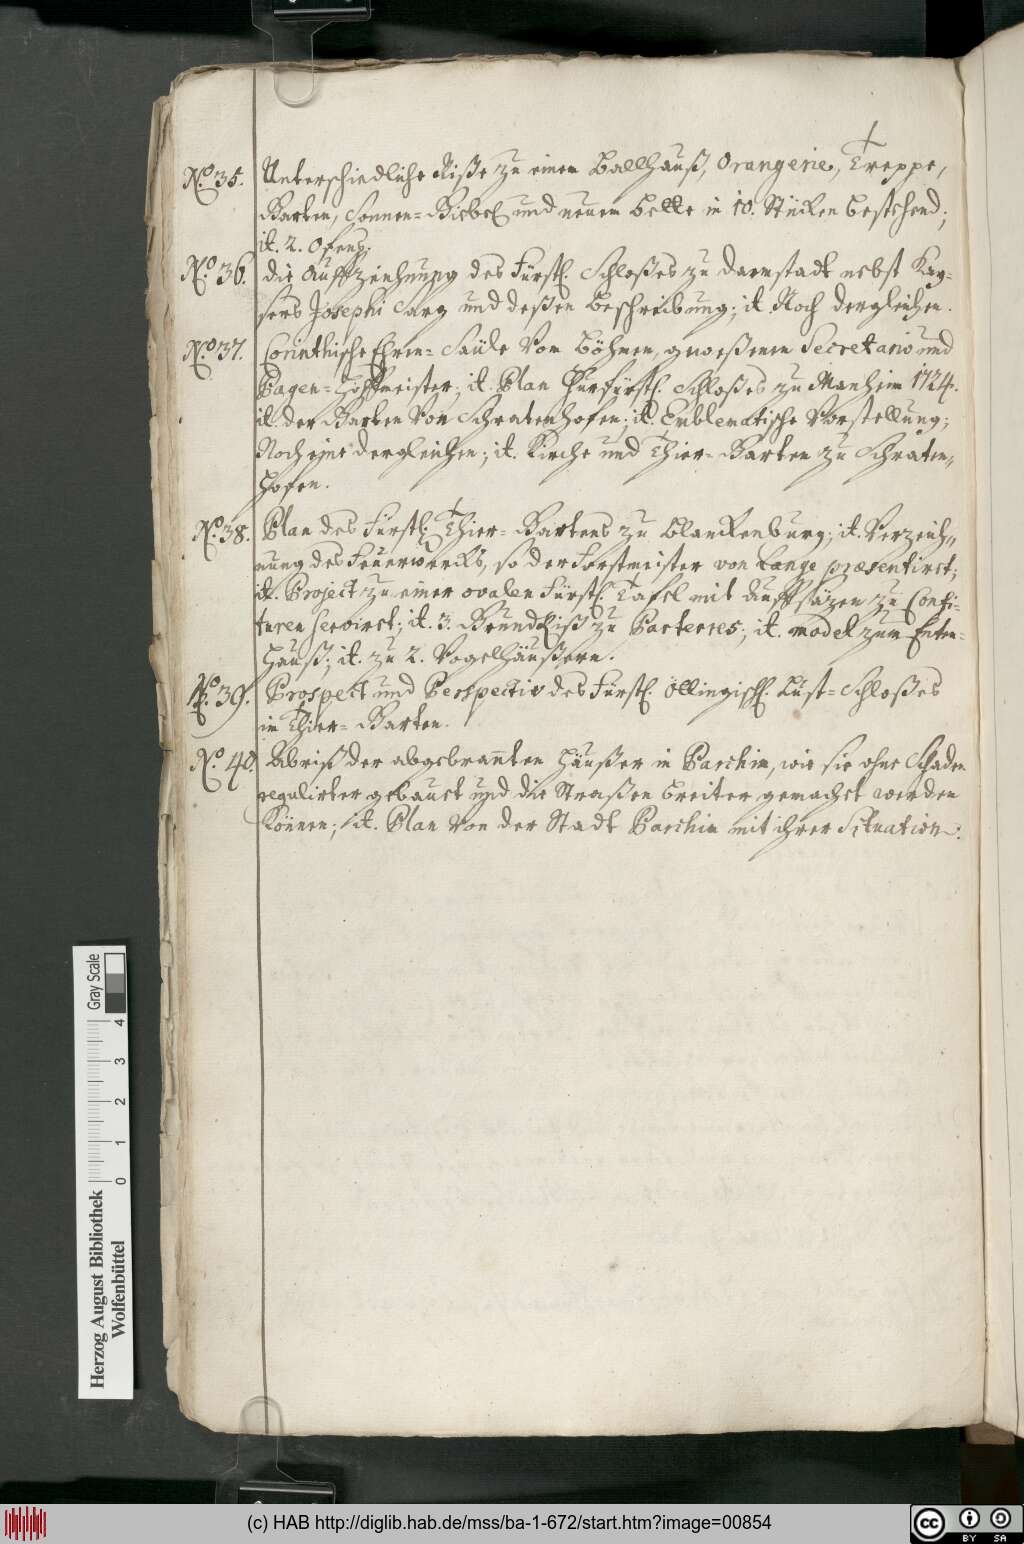 No. 35. Unterschiedliche Riße zu einem Ballhauß, Orangerie, Treppe,
Garten, Sonnen=Giebel und neuem Bette in 10. Stücken bestehend;
it. 2. Ofens.
No. 36. die Auffzeichnung des Fürstl. Schloßes zu Darmstadt nebst Kay=
sers Josephi Sarg und deßen Beschreibung; it. Noch dergleichen.
No. 37. Corinthische Ehren=Säule Von Böhmen, gewesenem Secretario und
Pagen=Hoffmeister; it. Plan Churfürstl. Schloßes zu Manheim 1724.
it. der Garten Von Schratenhofen; it. Emblematische Vorstellung;
Noch eine dergleichen; it. Kirche und Thier=Garten zu Schraten,,
hofen.
No. 38. Plan des Fürstl. Thier=Gartens zu Blanckenburg; it. Verzeich,,
nung des Feuerwercks, so der Forstmeister von Lange præsentiret;
it. Project zu einer ovalen Fürstl. Tafel mit Auffsäzen zu Confi=
turen serviret; it. 3. Grundriß zu Parterres; it. model zum Enten=
Hauß; it. zu 2. Vogelhäußern.
No. 39. Prospect und Perspectiv des Fürstl. Öttingisch. Lust=Schloßes
im Thier=Garten.
No. 40. Abriß der abgebranten Häußer in Parchim, wie sie ohne Schaden
regulirter gebauet und die Straßen breiter gemachet werden
können; it. Plan Von der Stadt Parchim mit ihrer Situation.
Gray Scale
0 1 2 3 4
Herzog August Bibliothek
Wolfenbüttel
(c) HAB http://diglib.hab.de/mss/ba-1-672/start.htm?image=00854
cc BY SA